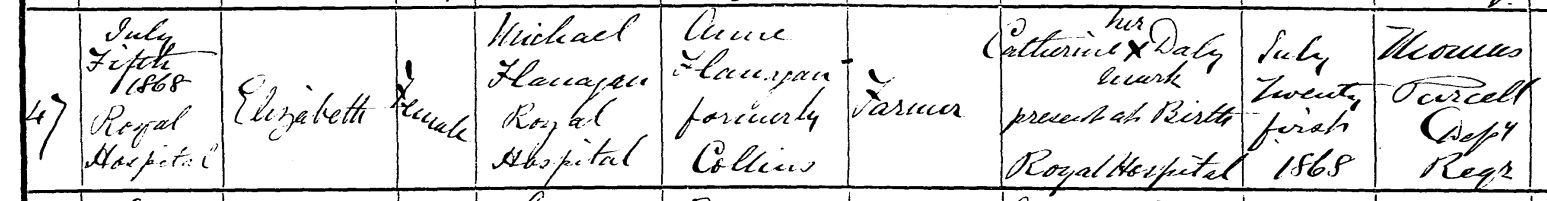 47
July
Fifth
1868
Royal
Hospital
Elizabeth
Female
Michael
Flanagan
Royal
Hospital
Anne
Flanagan
formerly
Collins
Farmer
her
Catherine X Daly
mark
present at Birth
Royal Hospital
July
Twenty
first
1868
Thomas
Purcell
Depy
Regr